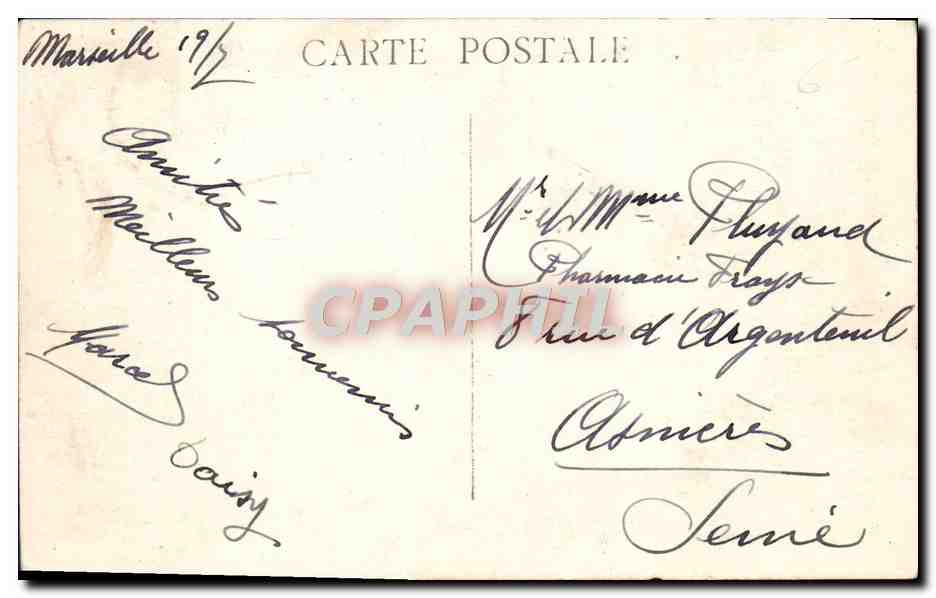 Marseille 19/7
CARTE POSTALE
Amitiés
Meilleurs souvenirs
Marcel
Daisy
Mr et Mme
Pharmacie
8 rue d'Argenteuil
Asnières
Seine
CPAPHIL